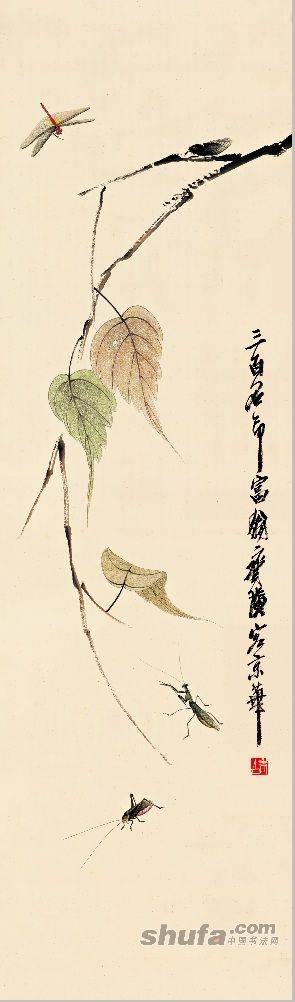 三百石印富翁齊璜客京華
shufa.com
中国书法网